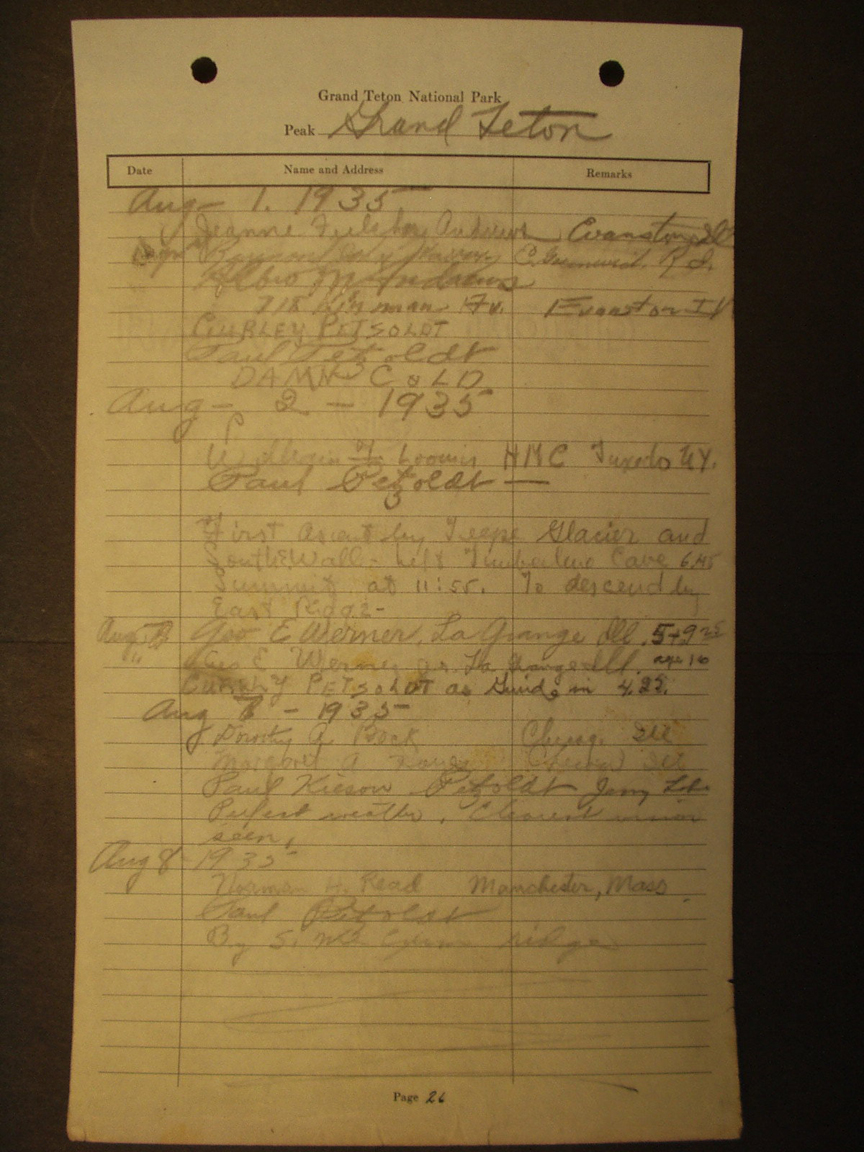 Grand Teton National Park
Peak Grand Teton
Date Name and Address Remarks
Aug - 1. 1935
Jeanne Andrews Evanston Ill
R. I.
Albro M Andrews
718 Hinman Av. Evanston Ill
CURLEY PETSOLDT
Paul Petzoldt
DAMN COLD
Aug - 2 - 1935
F. Loomis HMC Tuxedo NY.
Paul Petzoldt —
First Ascent by Teepe Glacier and
South Wall - Left Timberline Cave 6:45
Summit at 11:55. To descend by
East Ridge -
Geo E Werner, La Grange Ill.
Geo E Werner Jr. La Grange Ill.
CURLEY PETSOLDT as Guide in 4.25.
Aug - 1935
Dorothy A Chicago Ill
Margaret A Ill
Paul Petzoldt
Perfect weather. Clearest
seen.
Aug 8 - 1935
Norman H. Read Manchester, Mass.
Paul Petzoldt
By S. ridge
Page 26